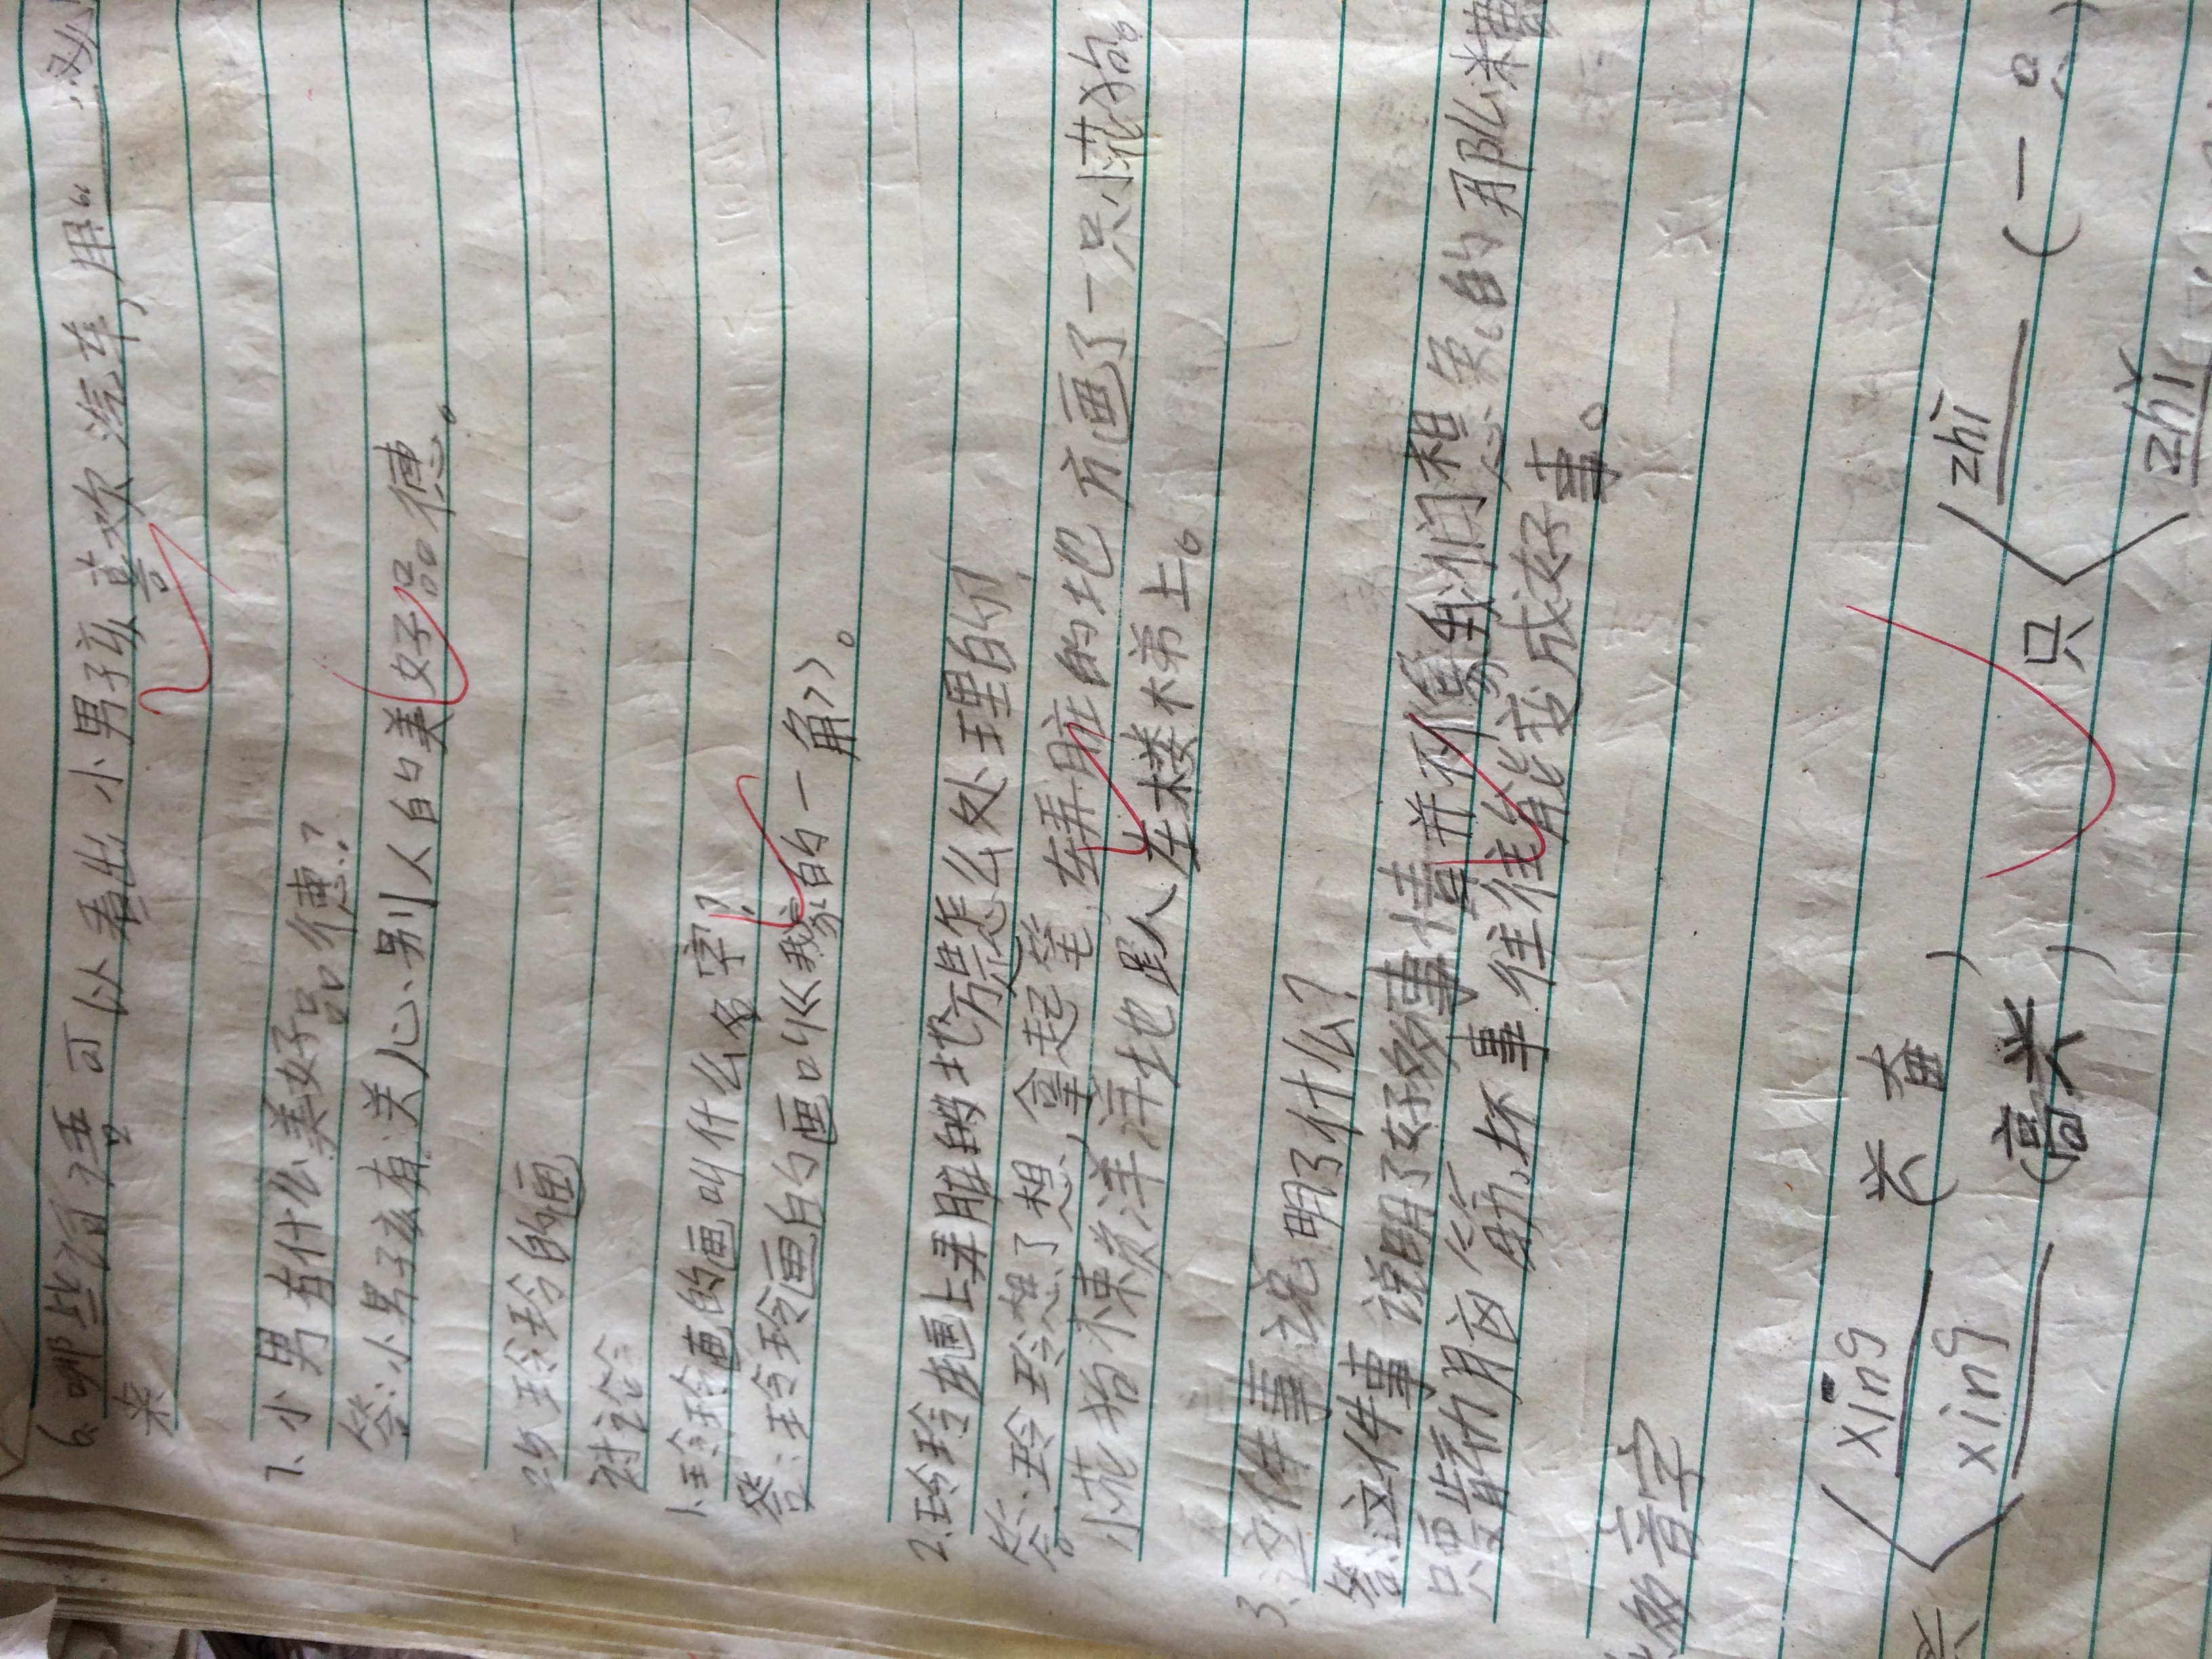 6.哪些词语可以看出小男孩喜欢汽车,用"
来
7.小男有什么美好品德?
答:小男孩有关心别人的美好品德。
25玲玲的画
讨论
1.玲玲画的画叫什么名字?
答:玲玲画的画叫《我家的一角》。
2.玲玲在画上弄脏的地方是怎么处理的
答:玲玲想了想,拿起笔,在弄脏的地方画了一只小花狗。
小花狗懒洋洋地趴在楼梯上。
3.这件事说明了什么?
答:这件事说明了好多事情并不像我们想象的那么糟
只要肯动脑筋,坏事往往能变成好事。
多音字
xīng (兴奋)
xìng (高兴)
只 zhī (一
zhǐ